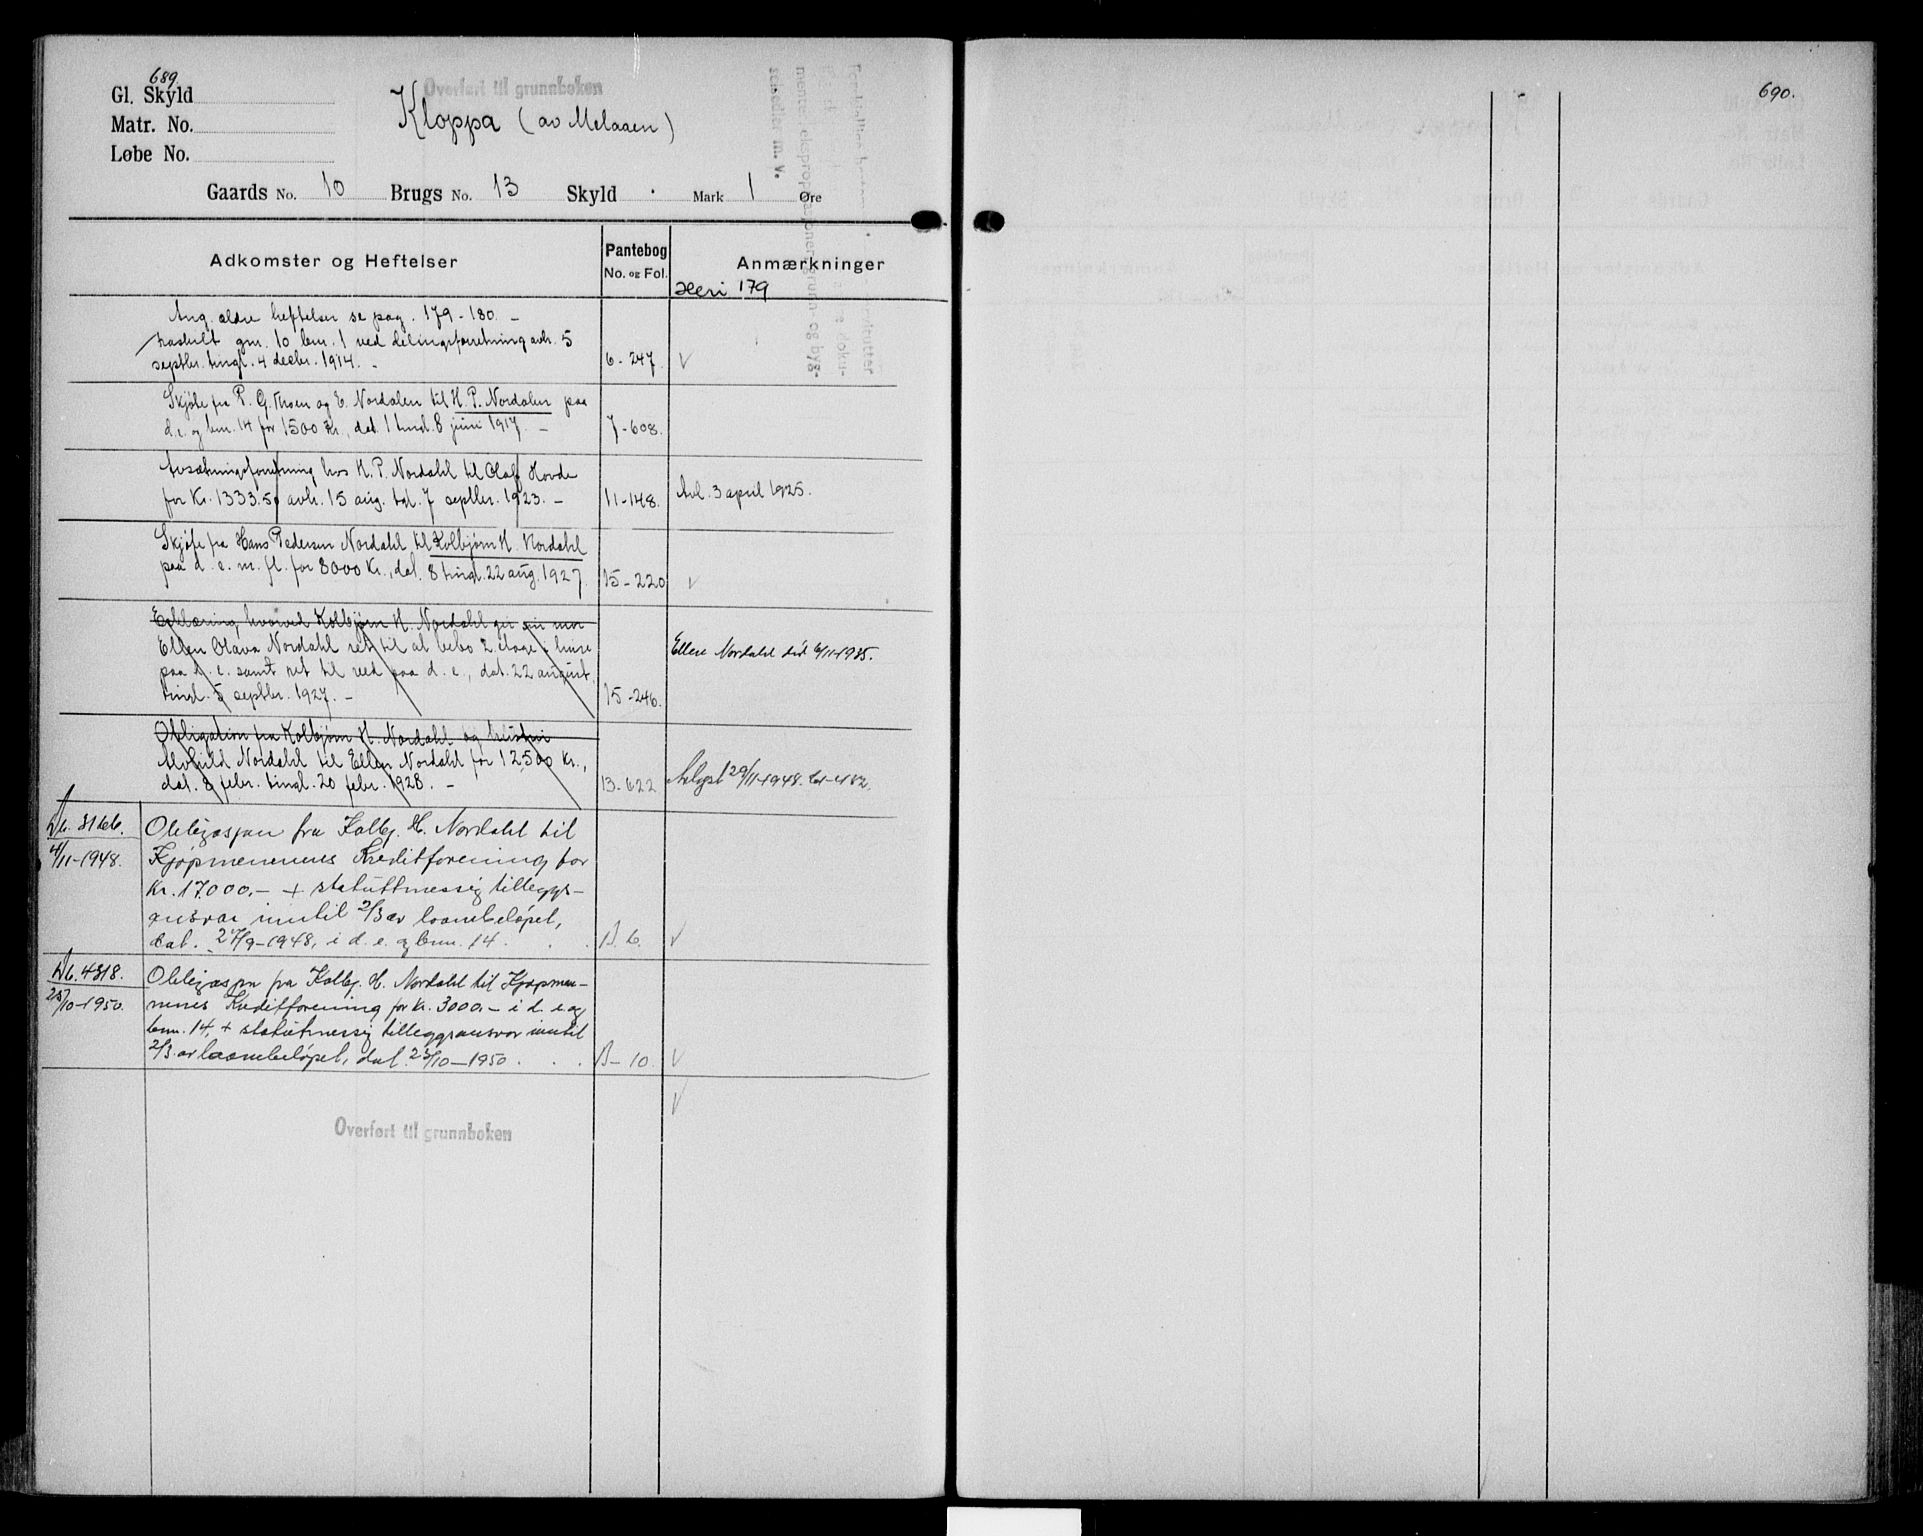 689.
Overført til grunnboken
Gl. Skyld
Matr. No.
Løbe No.
Kloppa (av Melaaen)
Gaards No. 10 Brugs No. 13 Skyld . Mark 1 Øre
Adkomster og Heftelser
Pantebog
No. og Fol.
Anmærkninger
179
Ang. ældre heftelser se pag. 179-180. -
fraskilt gnr. 10 bnr. 1 ved delingsforretning avh. 5
septbr. tingl. 4 decbr. 1914. - 6-247. V
Skjøte fra P. G. Moen og E. Nordalen til H. P. Nordalen paa
d.e. og bnr. 14 for 1500 Kr., dat. 1 tingl. 8 juni 1917. - 7-608.
hos H. P. Nordahl til Olaf Hovde
for Kr. 1333.50 avh. 15 aug. tgl. 7 septbr. 1923. - 11-148. Avl. 3 april 1925.
Skjøte fra Hans Pedersen Nordahl til Kolbjørn H. Nordahl
paa d. e. m. fl. for 8000 Kr., dat. 8 tingl. 22 aug. 1927. 15-220 V
Erklæring, hvorved Kolbjørn H. Nordahl gir sin mor
Ellen Olava Nordahl ret til at bebo 2. etage i huse
paa d. e. samt ret til ved paa d. e., dat. 22 august,
tingl. 5 septbr. 1927. - 15-246.
Ellen Nordahl død 6/11-1935.
Obligation fra Kolbjørn H. Nordahl og hustru
Alvhild Nordahl til Ellen Nordahl for 12500 Kr.,
dat. 8 febr. tingl. 20 febr. 1928. - 13-622 Avlyst 29/11-1948.
Db. 3166.
4/11-1948.
Obligasjon fra Kolbj. H. Nordahl til
Kjøpmennenes Kreditforening for
Kr. 17000,- + statuttmessig tilleggs-
ansvar inntil 2/3 av laanebeløpet,
dat. 27/9-1948, i d. e. og bnr. 14. . . B. 6. V
Db. 4318.
25/10-1950.
Obligasjon fra Kolbj. H. Nordahl til Kjøpmen-
nenes Kreditforening for kr. 3000.- i d. e. og
bnr. 14, + statutmessig tilleggsansvar inntil
2/3 av laanebeløpet, dat. 23/10-1950. . . B-10. V
V
Overført til grunnboken
690.